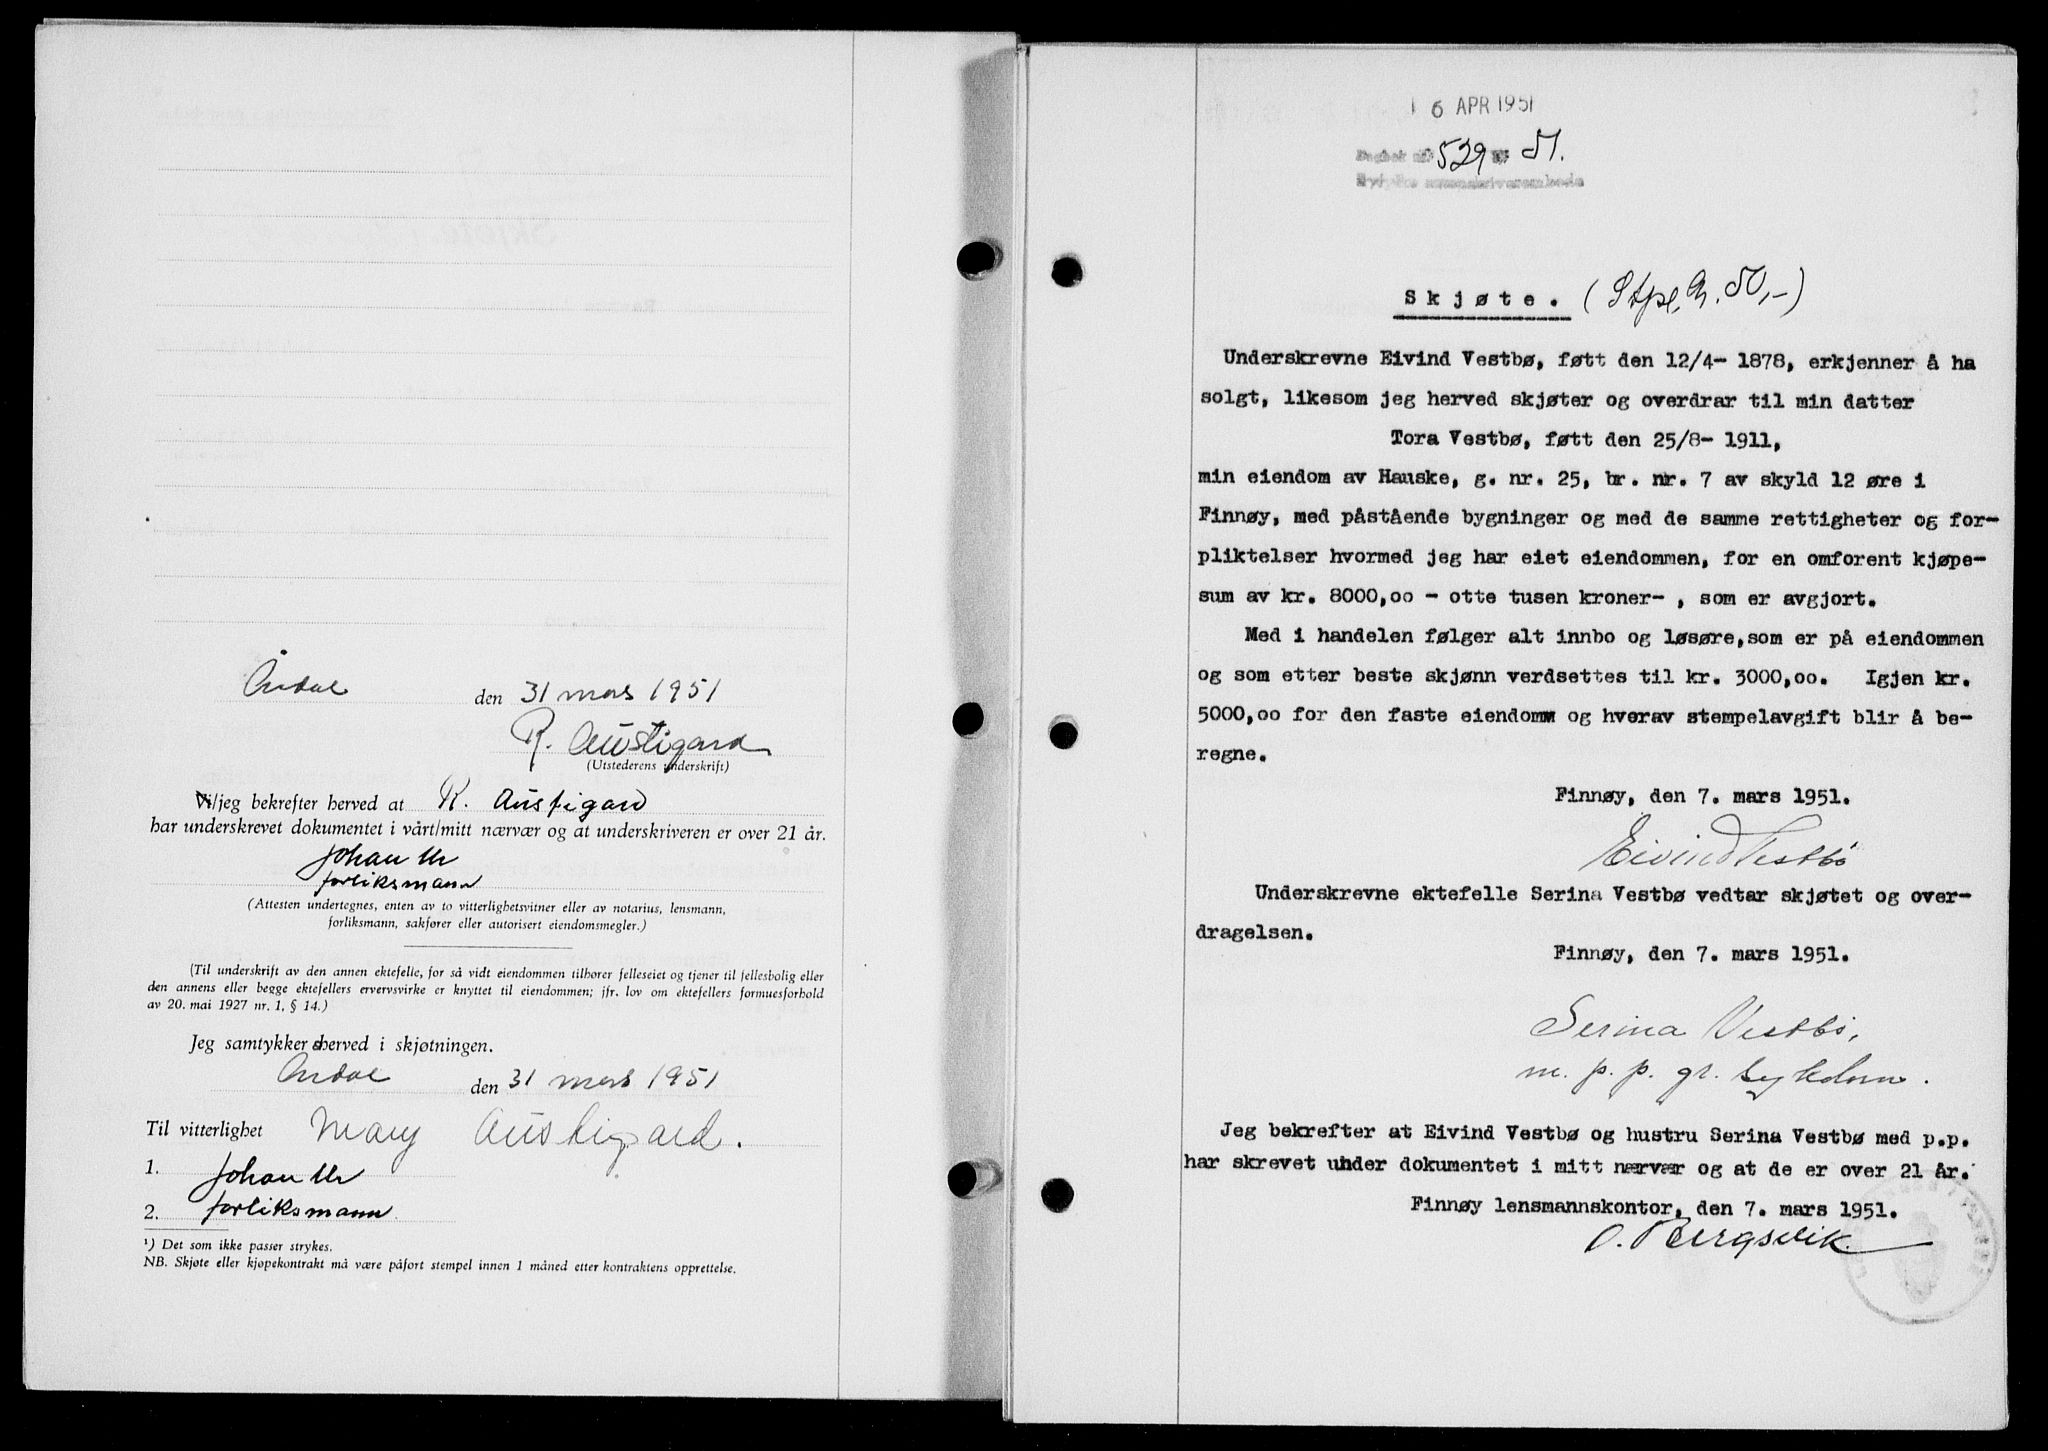 den 31 mars 1951
R. Austigard
(Utstederens underskrift)
Vi/jeg bekrefter herved at R. Austigard
har underskrevet dokumentet i vårt/mitt nærvær og at underskriveren er over 21 år.
Johan Ur
forliksmann
(Attesten undertegnes, enten av to vitterlighetsvitner eller av notarius, lensmann,
forliksmann, sakfører eller autorisert eiendomsmegler.)
(Til underskrift av den annen ektefelle, for så vidt eiendommen tilhører felleseiet og tjener til fellesbolig eller
den annens eller begge ektefellers ervervsvirke er knyttet til eiendommen; jfr. lov om ektefellers formuesforhold
av 20. mai 1927 nr. 1, § 14.)
Jeg samtykker herved i skjøtningen.
den 31 mars 1951
Til vitterlighet Mary Austigard.
1. Johan Ur
2. forliksmann.
¹) Det som ikke passer strykes.
NB. Skjøte eller kjøpekontrakt må være påført stempel innen 1 måned etter kontraktens opprettelse.
16 APR 1951
Dagbok nr 529 51.
Skjøte. (Stpl. kr. 50,-)
Underskrevne Eivind Vestbø, føtt den 12/4- 1878, erkjenner å ha
solgt, likesom jeg herved skjøter og overdrar til min datter
Tora Vestbø, føtt den 25/8- 1911,
min eiendom av Hauske, g. nr. 25, br. nr. 7 av skyld 12 øre i
Finnøy, med påstående bygninger og med de samme rettigheter og for-
pliktelser hvormed jeg har eiet eiendommen, for en omforent kjøpe-
sum av kr. 8000,oo - otte tusen kroner- , som er avgjort.
Med i handelen følger alt innbo og løsøre,som er på eiendommen
og som etter beste skjønn verdsettes til kr. 3000,oo. Igjen kr.
5000,oo for den faste eiendomm og hverav stempelavgift blir å be-
regne.
Finnøy, den 7. mars 1951.
Eivind Vestbø
Underskrevne ektefelle Serina Vestbø vedtar skjøtet og over-
dragelsen.
Finnøy, den 7. mars 1951.
Serina Vestbø,
m. p. p. gr. sykdom.
Jeg bekrefter at Eivind Vestbø og hustru Serina Vestbø med p.p.
har skrevet under dokumentet i mitt nærvær og at de er over 21 år.
Finnøy lensmannskontor, den 7. mars 1951.
O. Bergsvik